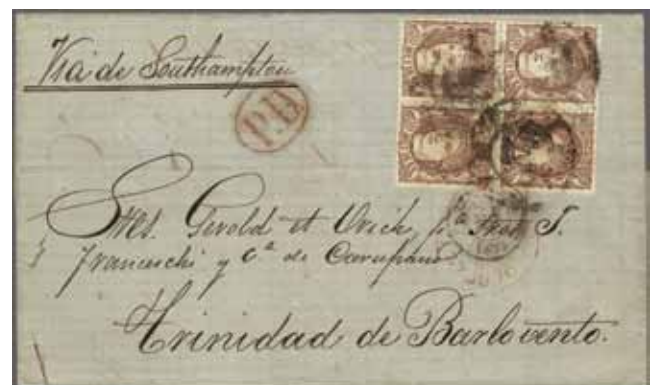 Via de Southampton
P.D.
Sres. Gerold et Urich, pa. Sres. J.
Franceschi y Ca. de Carupano
Trinidad de Barlovento.